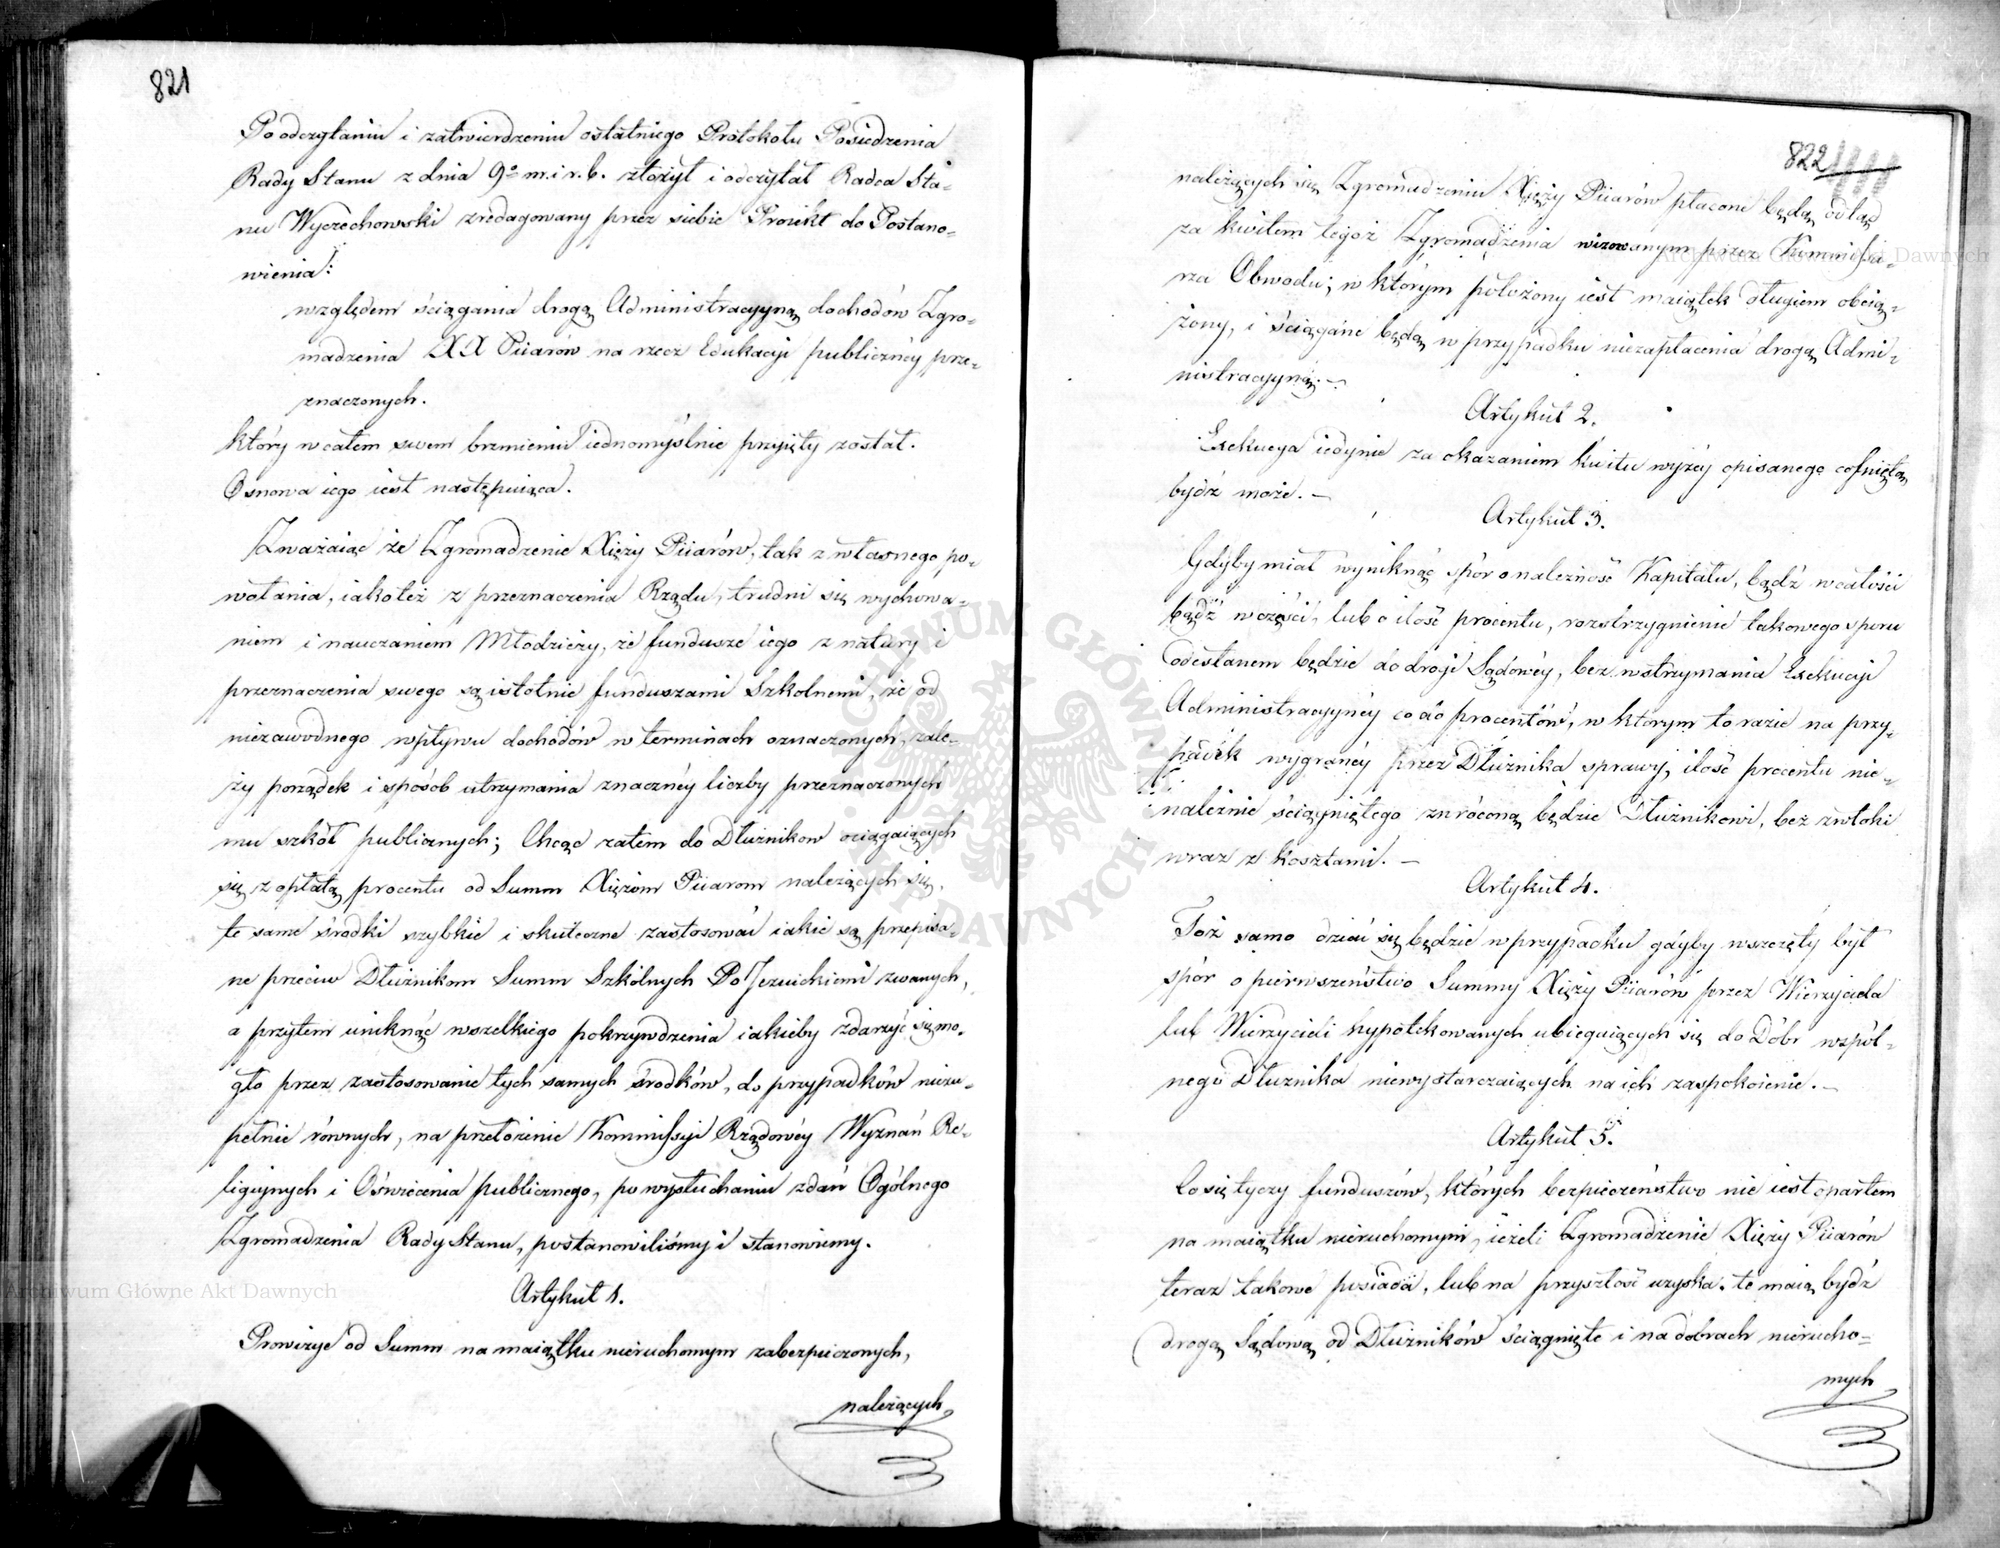 821
Po odczytaniu i zatwierdzeniu ostatniego Protokołu Posiedzenia
Rady Stanu z dnia 9º m. i r. b. złożył i odczytał Radca Sta-
nu Wyczechowski zredagowany przez siebie Proiekt do Postano-
wienia:
względem ściągania drogą Administracyyną dochodów Zgro-
madzenia XX Piiarów na rzecz Edukacyi publicznéy prze-
znaczonych.
który w całem swem brzmieniu iednomyślnie przyięty został.
Osnowa iego iest następuiąca.
Zważaiąc że Zgromadzenie Xięży Piiarów, tak z własnego po-
wołania, iakoteż z przeznaczenia Rządu, trudni się wychowa-
niem i nauczaniem Młodzieży, że fundusze iego z natury i
przeznaczenia swego są istotnie funduszami Szkolnemi, że od
niezawodnego wpływu dochodów w terminach oznaczonych, zale-
ży porządek i sposób utrzymania znacznéy liczby przeznaczonych
mu szkół publicznych; Chcąc zatem do Dłużnikow ociągaiących
się z opłatą procentu od Summ Xiężom Piiarom należących się,
te same środki szybkie i skuteczne zastosować iakie są przepisa-
ne przeciw Dłużnikom Summ Szkólnych PoJezuickiemi zwanych,
a przytem uniknąć wszelkiego pokrzywdzenia iakieby zdarzyć się mo-
gło przez zastosowanie tych samych środków, do przypadków niezu-
pełnie równych, na przełożenie Kommissyi Rządowéy Wyznań Re-
ligiynych i Oświecenia publicznego, po wysłuchaniu zdań Ogólnego
Zgromadzenia Rady Stanu, postanowiliśmy i stanowiemy.
Artykuł 1.
Prowizye od Summ na maiątku nieruchomym zabezpieczonych,
należących
822
należących się Zgromadzeniu Xięży Piiarów płacone będą odtąd
za kwitem tegoż Zgromadzenia wizowanym przez Kommissa-
rza Obwodu; w którym położony iest maiątek długiem obcią-
żony, i ściągane będą w przypadku niezapłacenia drogą Admi-
nistracyyną. —
Artykuł 2.
Exekucya iedynie za okazaniem kwitu wyżéy opisanego cofniętą
bydź może. —
Artykuł 3.
Gdyby miał wyniknąć spór o należność Kapitału, bądź w całości
bądź w części, lub o ilość procentu, rozstrzygnienie takowego sporu
odesłanem będzie do drogi Sądowéy, bez wstrzymania Exekucyi
Administracyynéy co do procentów, w którym to razie na przy-
padek wygranéy przez Dłużnika sprawy, ilość procentu nie-
należnie ściągniętego zwróconą będzie Dłużnikowi, bez zwłoki
wraz z kosztami. —
Artykuł 4.
Toż samo dziać się będzie w przypadku gdyby wszczęty był
spór o pierwszeństwo Summy Xięży Piiarów przez Wierzyciela
lub Wierzycieli hypotekowanych ubiegaiących się do Dóbr wspól-
nego Dłużnika niewystarczaiących na ich zaspokoienie. —
Artykuł 5.
Co się tyczy funduszów, których bezpieczeństwo nie iest opartem
na maiątku nieruchomym, ieżeli Zgromadzenie Xięży Piiarów
teraz takowe posiada, lub na przyszłość uzyska, te maią bydź
drogą Sądową od Dłużników ściągnięte i na dobrach nierucho-
mych
Archiwum Główne Akt Dawnych
Archiwum Główne Akt Dawnych
ARCHIWUM GŁÓWNE AKT DAWNYCH